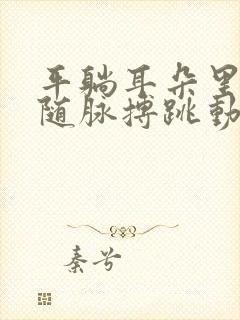 平躺耳朵里
随脉搏跳動
秦兮